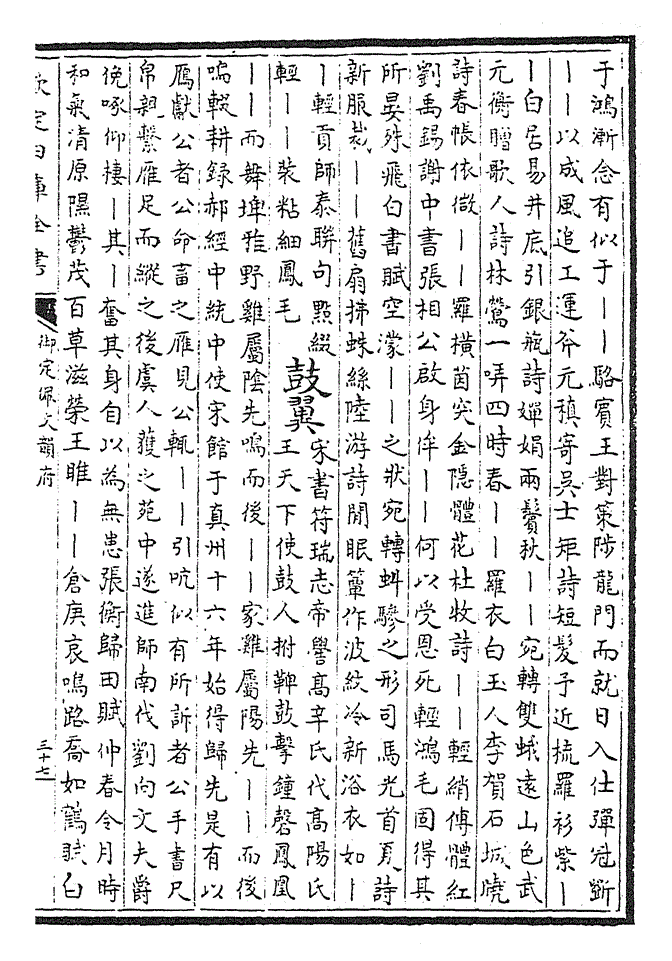 于鴻漸念有似于丨丨駱賓王對策陟龍門而就日入仕彈冠斷
丨丨以成風追工運斧元稹寄吳士矩詩短髮予近梳羅衫紫丨
丨白居易井底引銀瓶詩嬋娟兩鬢秋丨丨宛轉雙蛾遠山色武
元衡贈歌人詩林鶯一哢四時春丨丨羅衣白玉人李賀石城曉
詩春帳依微丨丨羅橫茵突金隱體花杜牧詩丨丨輕綃傅體紅
劉禹錫謝中書張相公啟身侔丨丨何以受恩死輕鴻毛固得其
所晏殊飛白書賦空濛丨丨之狀宛轉蚪驂之形司馬光首夏詩
新服裁丨丨舊扇拂蛛絲陸游詩閒眠簟作波紋冷新浴衣如丨
丨輕貢師泰聯句點綴
輕丨丨裝粘細鳳毛
鼓翼
宋書符瑞志帝嚳高辛氏代高陽氏
王天下使鼓人拊鞞鼓擊鐘磬鳳凰
丨丨而舞埤雅野雞屬陰先鳴而後丨丨家雞屬陽先丨丨而後
鳴輟耕錄郝經中統中使宋館于真州十六年始得歸先是有以
雁獻公者公命畜之雁見公輒丨丨引吭似有所訴者公手書尺
帛親繫雁足而縱之後虞人獲之苑中遂進師南伐劉向文夫爵
俛啄仰棲丨其丨奮其身自以為無患張衡歸田賦仲春令月時
和氣清原隰鬱茂百草滋榮王雎丨丨倉庚哀鳴路喬如鶴賦白
欽定四庫全書
御定佩文韻府
三十七